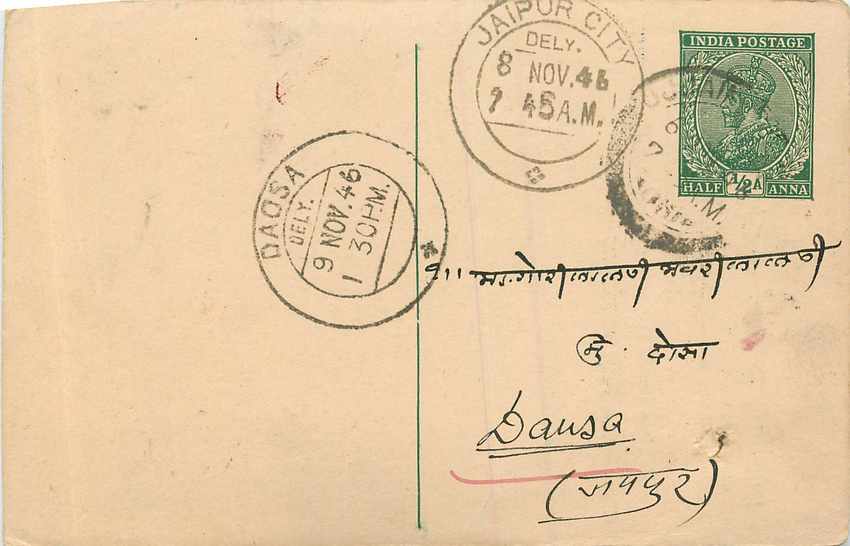 JAIPUR CITY
DELY.
8 NOV.46
7 45A.M.
INDIA POSTAGE
HALF 1/2A ANNA
DAOSA
DELY.
9 NOV.46
1 30PM.
मु. दोसा
Dausa
(जयपुर)